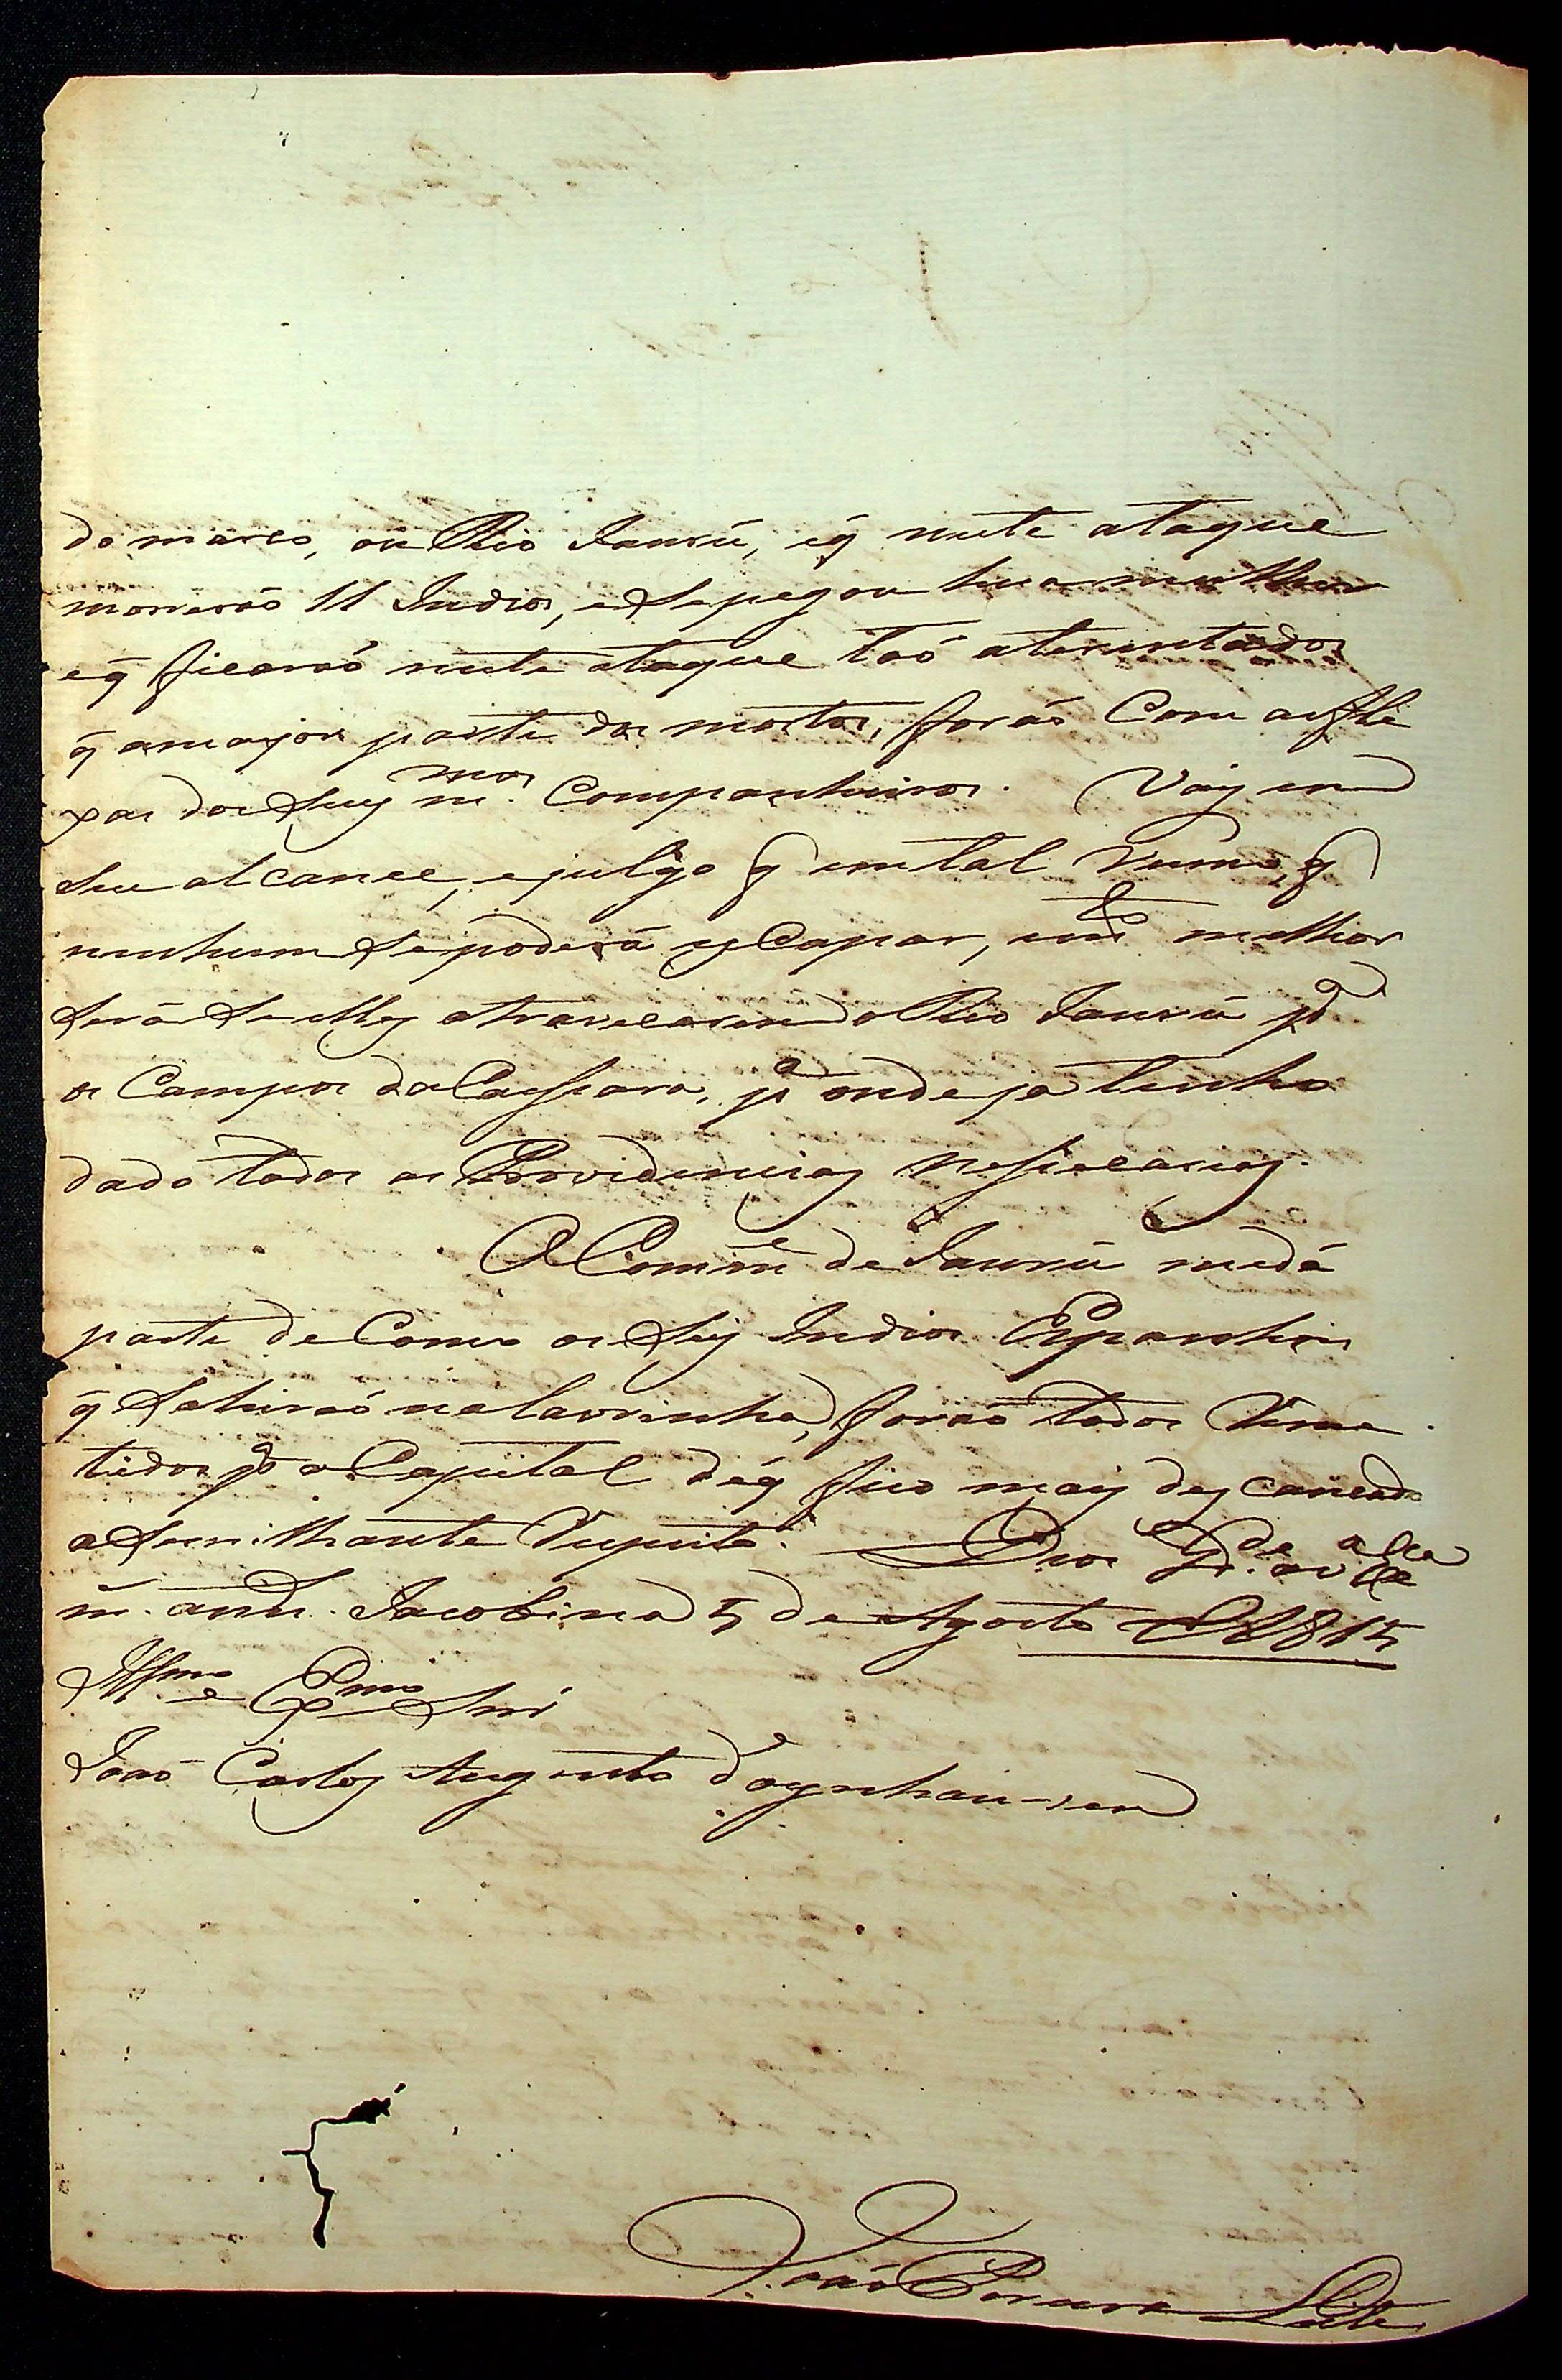 do marco, ou Rio Jaurú, eq̃ neste ataque
morreraõ 11 Indios, eSepegou hua mulher
eq̃ ficaraõ neste ataque taõ atormentados
q̃ amayor parte dos mortos, foraõ Com as fle
xas dos Seus m.mos Companheiros. Vay em
Seu alcance, ejulgo q̃ em tal rumo, q̃
nenhum Sepoderá esCapar, melhor
Será Se elles atravecarem do Rio Jaurú p.a
os Campos da Caissara, p.a onde ja tenho
dado todas as Providencias Nesiсarias.
O Comm.e de Jaurú medá
parte de Como os Seis Indios Espanhois
q̃ Sahiraõ na Lavrinha, foraõ todos Reme
tidos p.a a Capital deq̃ fico mais descancado
aSemilhante Respeito. Deos G.de a V. Ex.a
m. ann.s Jacobina 5 de Agosto D 1815
Ill.mo e Ex.mo Snr̃
Joaõ Carlos Augusto d'Oeynhausen
Joaõ Pereira Leite